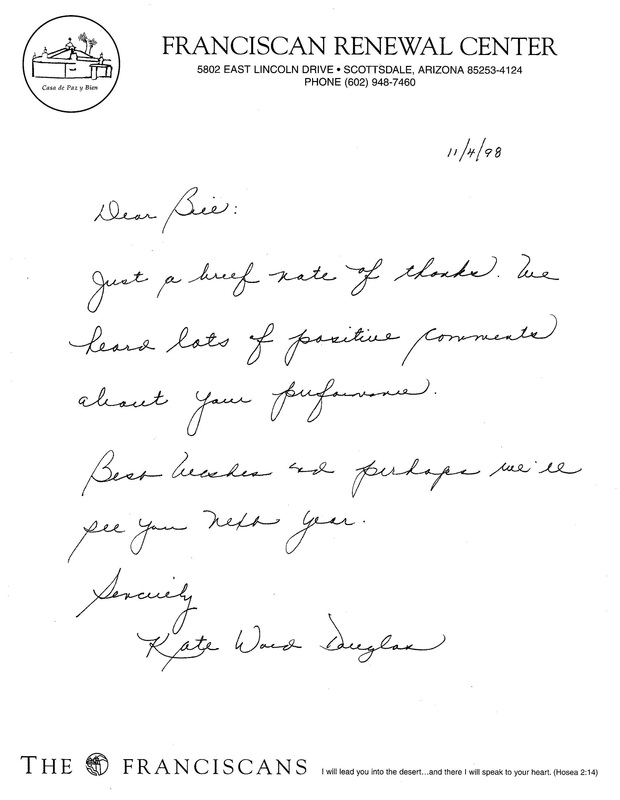 FRANCISCAN RENEWAL CENTER
5802 EAST LINCOLN DRIVE • SCOTTSDALE, ARIZONA 85253-4124
PHONE (602) 948-7460
Casa de Paz y Bien
11/4/98
Dear Bill:
Just a brief note of thanks. We
heard lots of positive comments
about your performance.
Best Wishes and perhaps we'll
see you next year.
Sincerely
Kate Ward Douglas
THE FRANCISCANS I will lead you into the desert...and there I will speak to your heart. (Hosea 2:14)